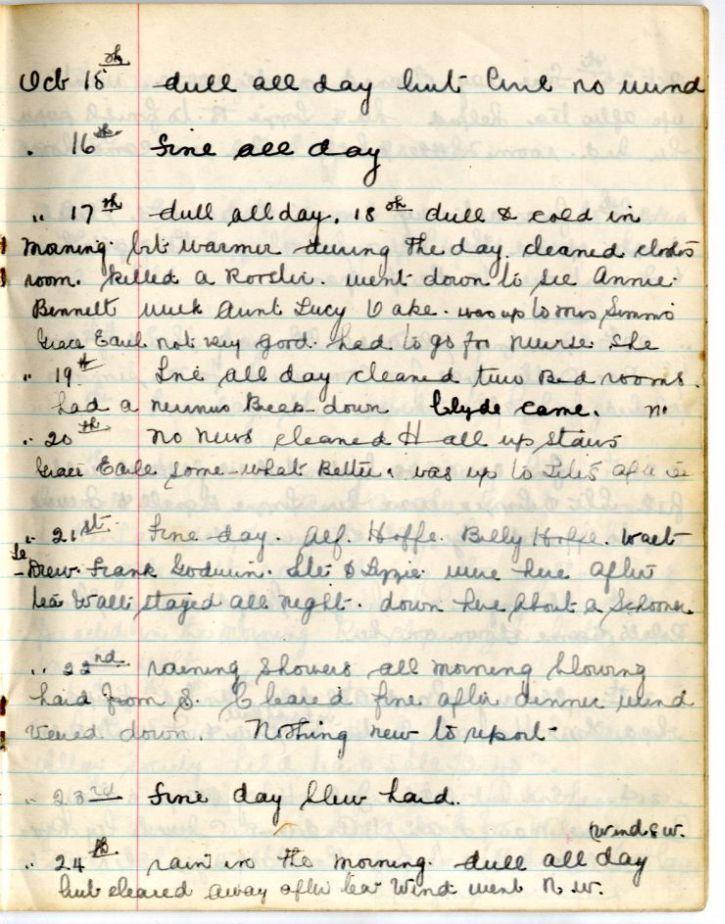 Oct 15th dull all day but fine no wind
. 16th fine all day
" 17th dull all day. 18th dull & cold in
morning. but warmer during the day. cleaned clothes
room. killed a Rooster. went down to see Annie.
Bennett with Aunt Lucy Vake. was up to Mrs Simms
Grace Earle not very good. had to go for nurse she
" 19th fine all day cleaned two Bed rooms.
had a nervous Break-down Clyde came. no
" 20th no news cleaned Hall up stairs
Grace Earle some-what Better. was up to after tea
" 21st fine day. Alf. Hoffe. Billy Hoffe. Walt
Drew. Frank Godwin. & Lizzie were here after
tea Walt stayed all night. down here about a Schooner
" 22nd raening showers all morning blowing
hard from S. Cleared fine after dinner wind
vered down. Nothing new to report-
" 23rd fine day blew hard.
(Wind S W.
" 24th rain in the morning. dull all day
but cleared away after tea Wind went N. W.